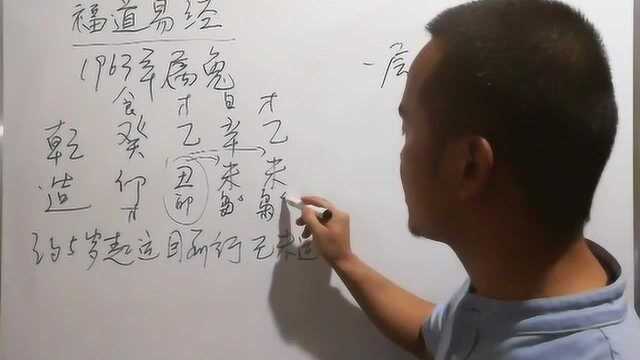 福道易经
1963年属兔
食 才 日 才
乾 癸 乙 辛 乙
造 卯 丑 未 未
才 印 枭 枭
约5岁起运目前行己未运
一层